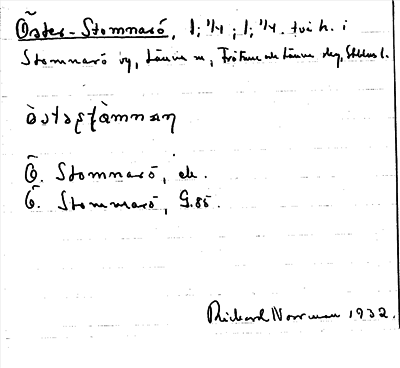 Öster-Stommarö, 1; 1/4; 1; 1/4. två h. i
Stommarö by, Länna n, Frötuna och Länna skg, Sthlms l.
Ö. Stommarö, ek.
Ö. Stommarö, G.85.
Rickard Norrman 1932.